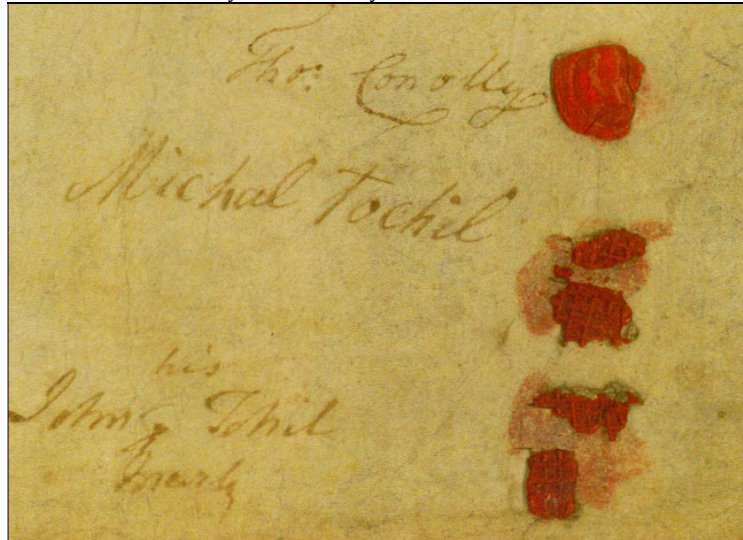 Tho.s Conolly
Michal Tochil
his
John Tohil
mark